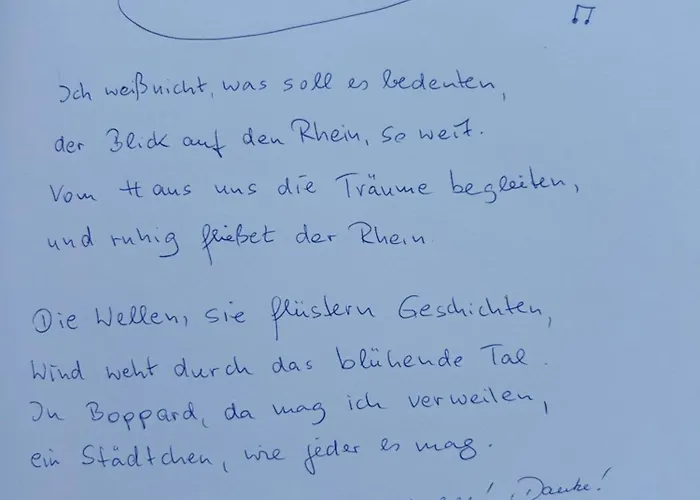 Ich weiß nicht, was soll es bedeuten,
der Blick auf den Rhein, so weit.
Vom Haus uns die Träume begleiten,
und ruhig fließet der Rhein.
Die Wellen, sie flüstern Geschichten,
Wind weht durch das blühende Tal.
In Boppard, da mag ich verweilen,
ein Städtchen, wie jeder es mag.
! Danke!